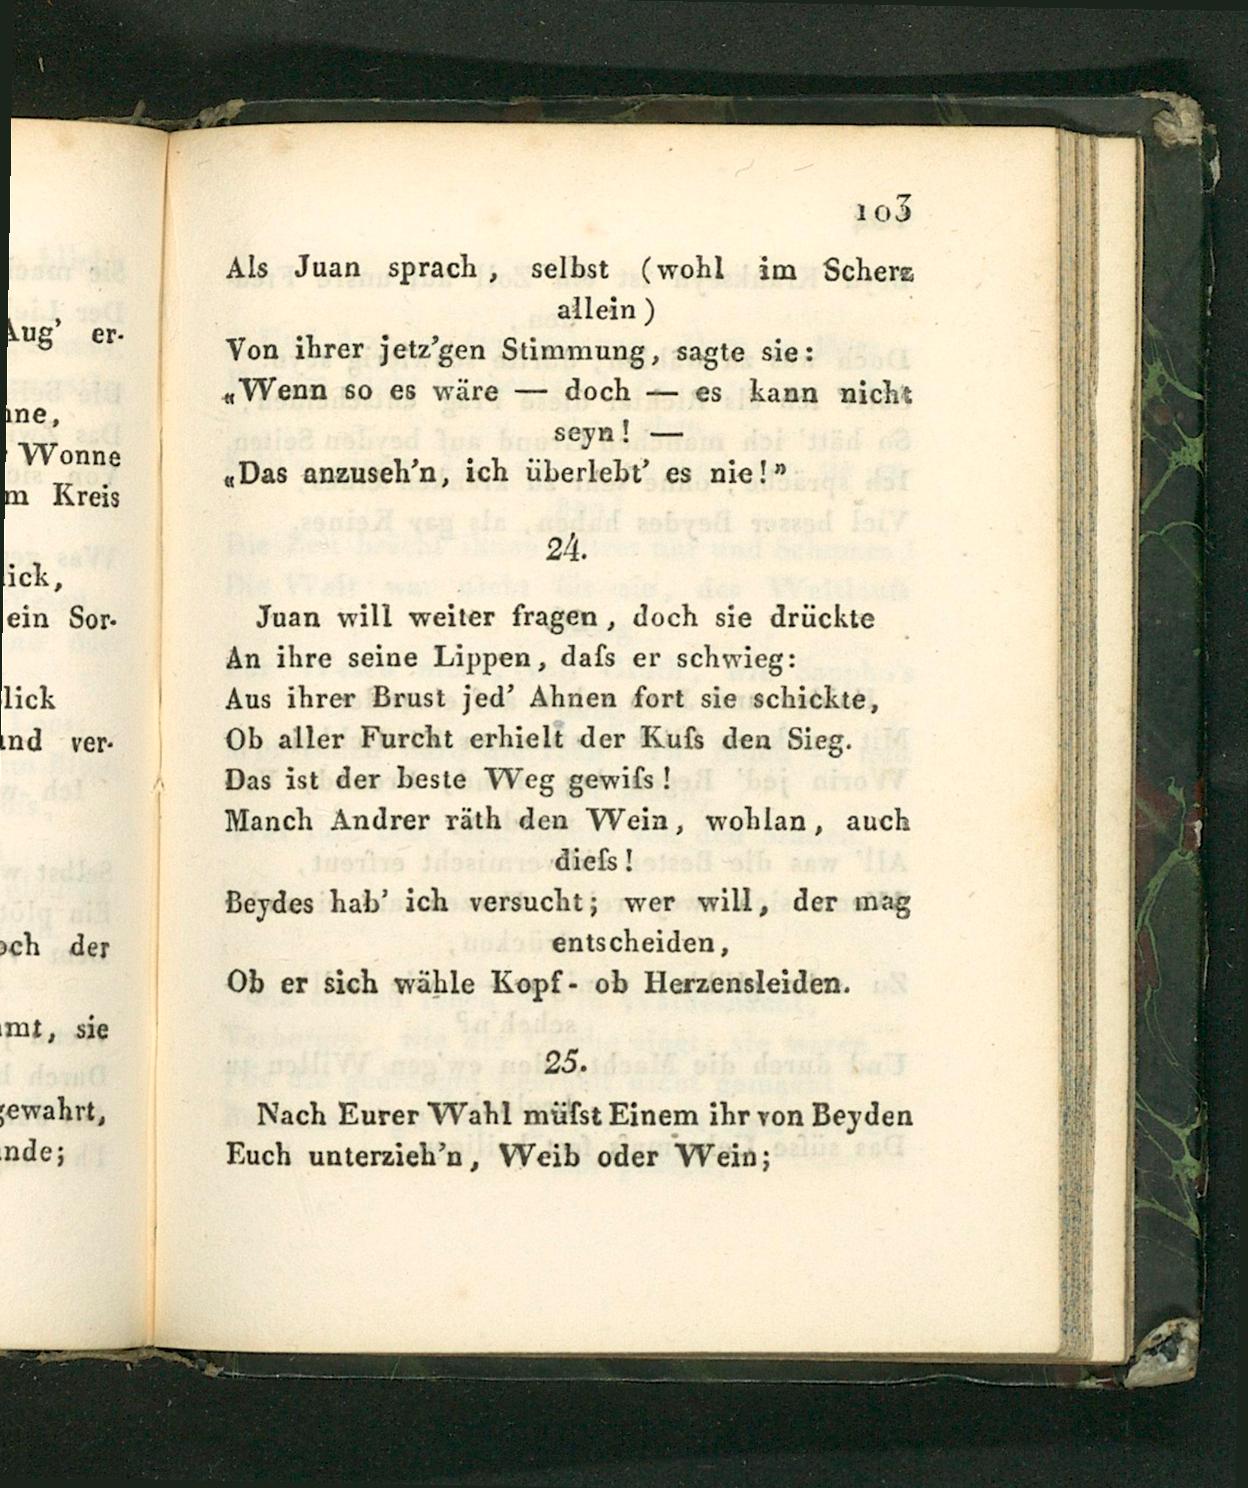 Aug' er-
Wonne
Kreis
ein Sor-
und ver-
der
sie
gewahrt,
103
Als Juan sprach, selbst (wohl im Scherz
allein)
Von ihrer jetz'gen Stimmung, sagte sie:
„Wenn so es wäre — doch — es kann nicht
seyn! —
„Das anzuseh'n, ich überlebt' es nie!”
24.
Juan will weiter fragen, doch sie drückte
An ihre seine Lippen, daſs er schwieg:
Aus ihrer Brust jed' Ahnen fort sie schickte,
Ob aller Furcht erhielt der Kuſs den Sieg.
Das ist der beste Weg gewiſs!
Manch Andrer räth den Wein, wohlan, auch
dieſs!
Beydes hab' ich versucht; wer will, der mag
entscheiden,
Ob er sich wähle Kopf- ob Herzensleiden.
25.
Nach Eurer Wahl müſst Einem ihr von Beyden
Euch unterzieh'n, Weib oder Wein;